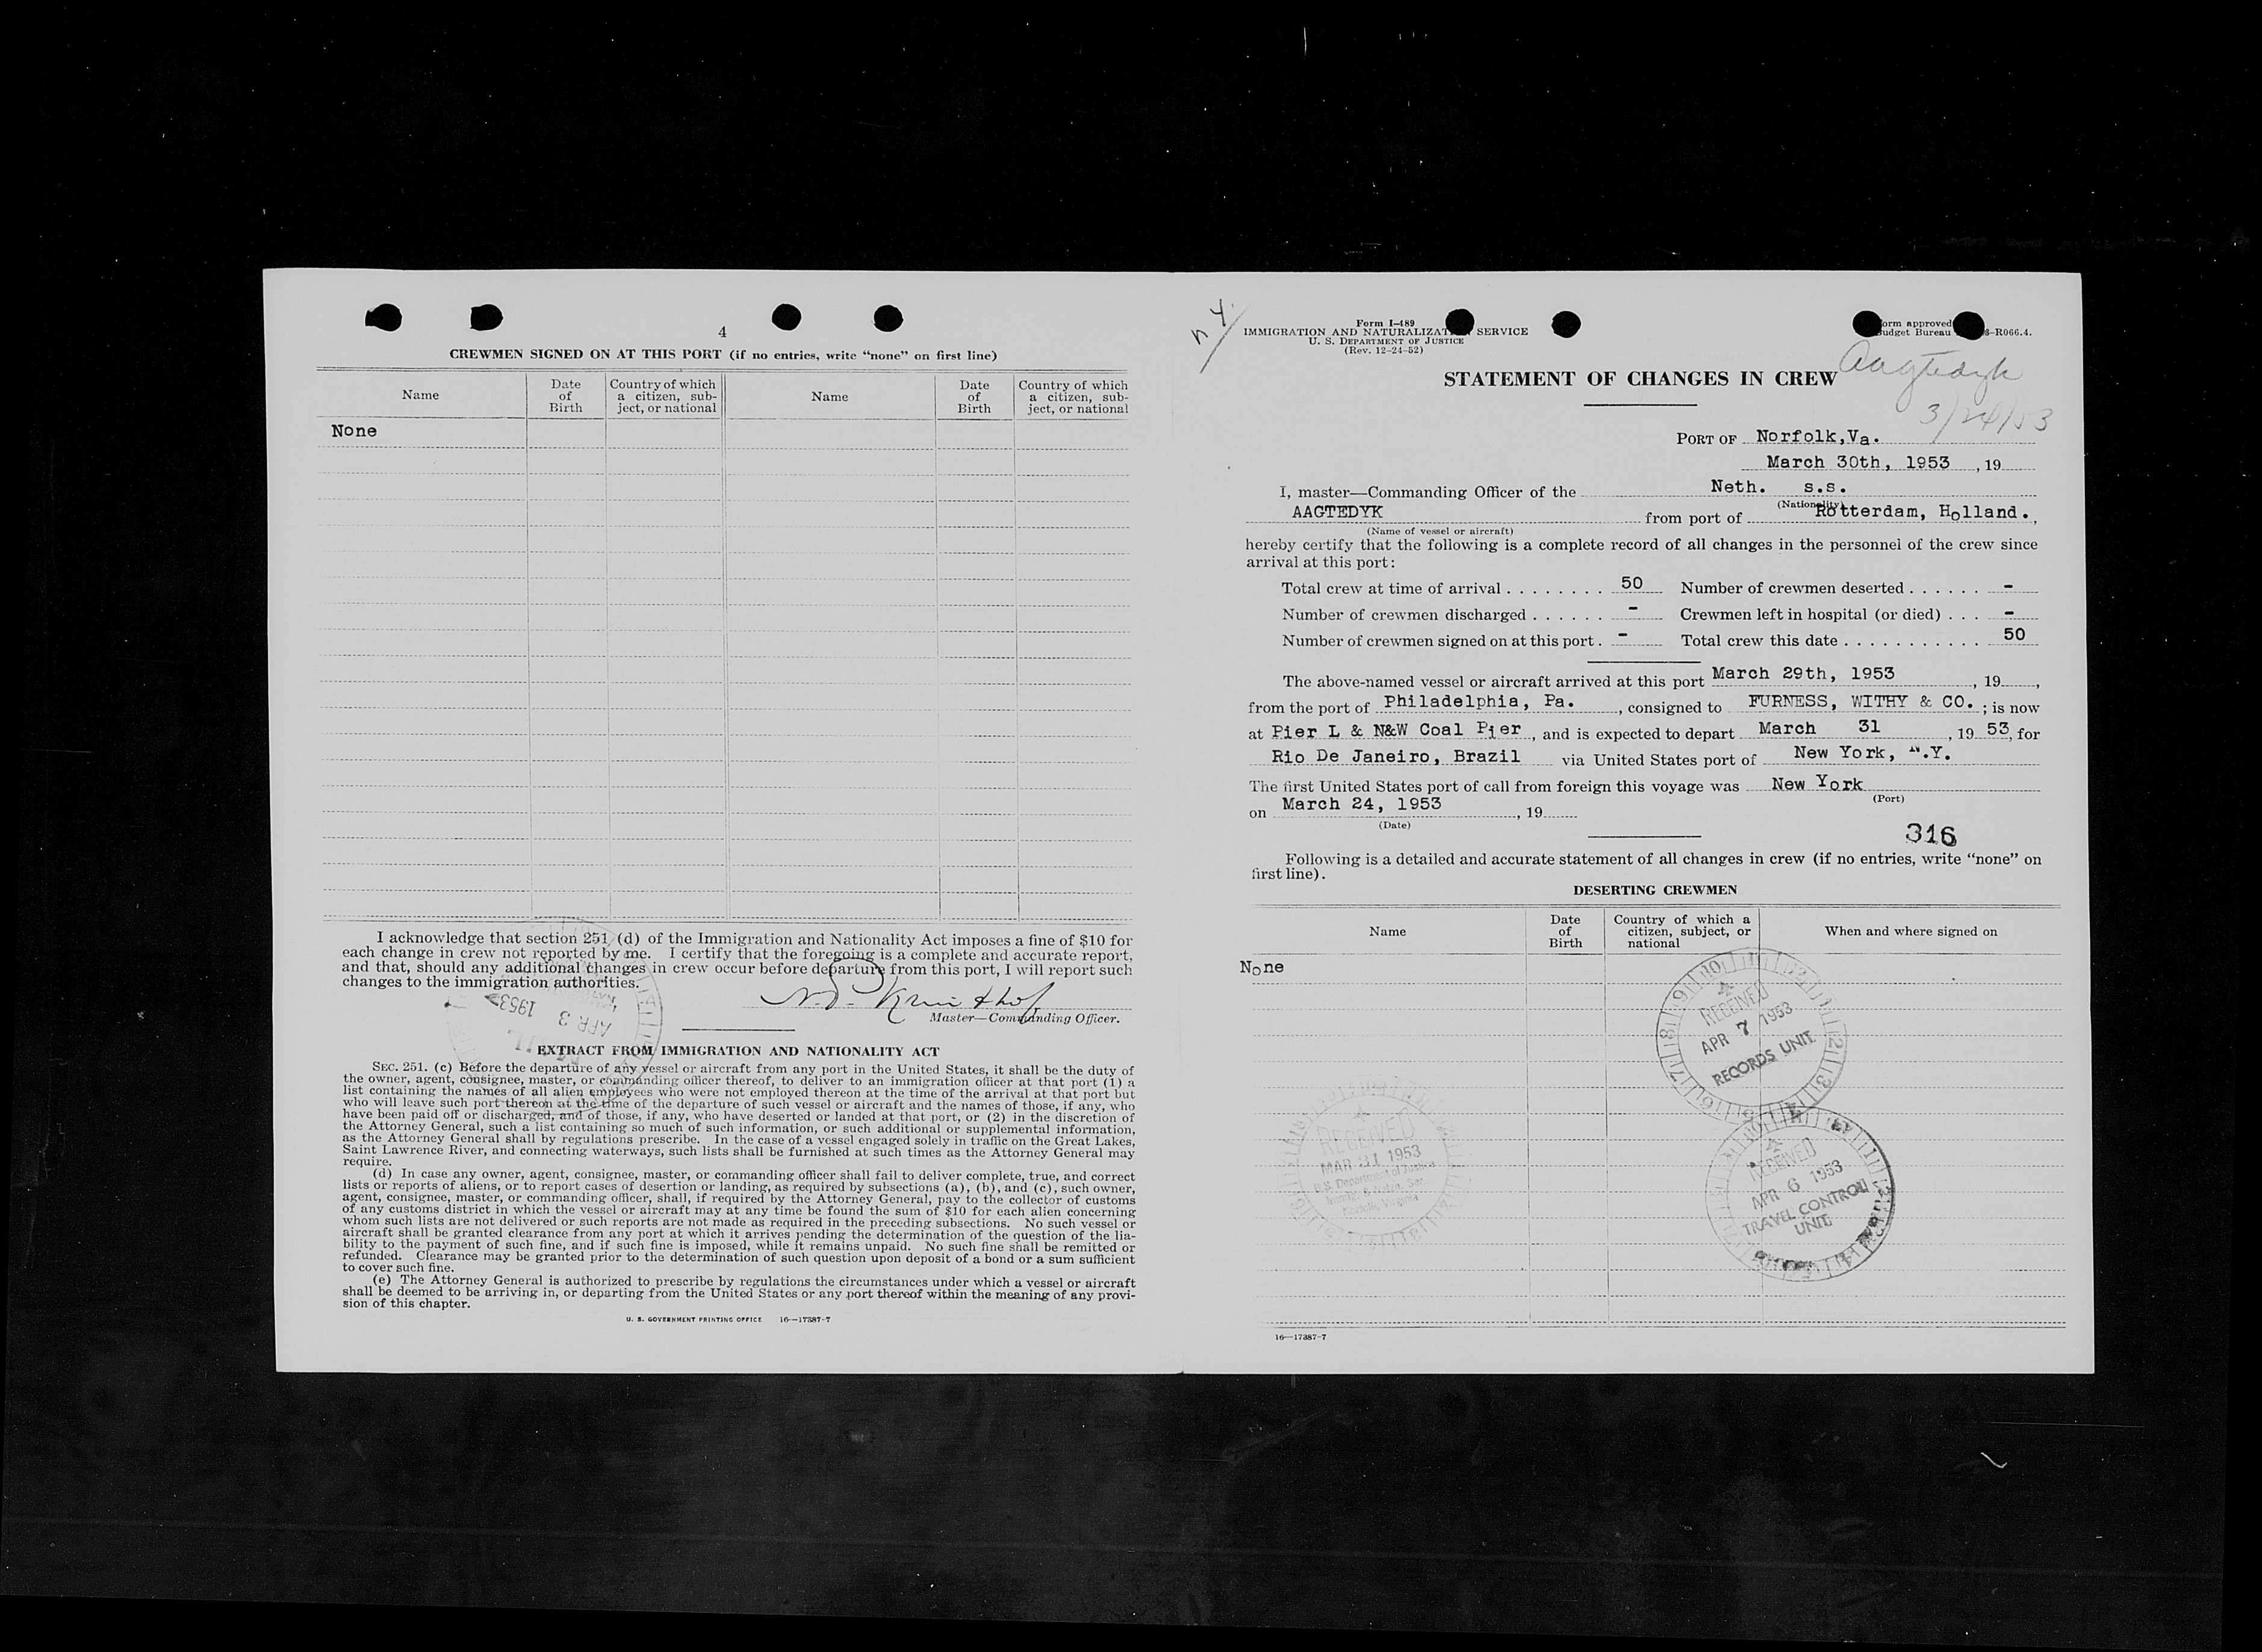 4
CREWMEN SIGNED ON AT THIS PORT (if no entries, write "none" on first line)
Name
Date of Birth
Country of which a citizen, subject, or national
Name
Date of Birth
Country of which a citizen, subject, or national
None
I acknowledge that section 251 (d) of the Immigration and Nationality Act imposes a fine of $10 for
each change in crew not reported by me. I certify that the foregoing is a complete and accurate report,
and that, should any additional changes in crew occur before departure from this port, I will report such
changes to the immigration authorities.
APR 3 1953
Master—Commanding Officer.
EXTRACT FROM IMMIGRATION AND NATIONALITY ACT
SEC. 251. (c) Before the departure of any vessel or aircraft from any port in the United States, it shall be the duty of
the owner, agent, consignee, master, or commanding officer thereof, to deliver to an immigration officer at that port (1) a
list containing the names of all alien employees who were not employed thereon at the time of the arrival at that port but
who will leave such port thereon at the time of the departure of such vessel or aircraft and the names of those, if any, who
have been paid off or discharged, and of those, if any, who have deserted or landed at that port, or (2) in the discretion of
the Attorney General, such a list containing so much of such information, or such additional or supplemental information,
as the Attorney General shall by regulations prescribe. In the case of a vessel engaged solely in traffic on the Great Lakes,
Saint Lawrence River, and connecting waterways, such lists shall be furnished at such times as the Attorney General may
require.
(d) In case any owner, agent, consignee, master, or commanding officer shall fail to deliver complete, true, and correct
lists or reports of aliens, or to report cases of desertion or landing, as required by subsections (a), (b), and (c), such owner,
agent, consignee, master, or commanding officer, shall, if required by the Attorney General, pay to the collector of customs
of any customs district in which the vessel or aircraft may at any time be found the sum of $10 for each alien concerning
whom such lists are not delivered or such reports are not made as required in the preceding subsections. No such vessel or
aircraft shall be granted clearance from any port at which it arrives pending the determination of the question of the lia-
bility to the payment of such fine, and if such fine is imposed, while it remains unpaid. No such fine shall be remitted or
refunded. Clearance may be granted prior to the determination of such question upon deposit of a bond or a sum sufficient
to cover such fine.
(e) The Attorney General is authorized to prescribe by regulations the circumstances under which a vessel or aircraft
shall be deemed to be arriving in, or departing from the United States or any port thereof within the meaning of any provi-
sion of this chapter.
U. S. GOVERNMENT PRINTING OFFICE 16—17387-7
n y
Form I-489
IMMIGRATION AND NATURALIZATION SERVICE
U. S. DEPARTMENT OF JUSTICE
(Rev. 12-24-52)
orm approved
udget Bureau 3-R066.4.
Aagtedyk
3/24/53
STATEMENT OF CHANGES IN CREW
PORT OF Norfolk,Va.
March 30th, 1953 , 19
I, master—Commanding Officer of the Neth. s.s.
(Nationality)
AAGTEDYK from port of Rotterdam, Holland.,
(Name of vessel or aircraft)
hereby certify that the following is a complete record of all changes in the personnel of the crew since
arrival at this port:
Total crew at time of arrival 50 Number of crewmen deserted -
Number of crewmen discharged - Crewmen left in hospital (or died) -
Number of crewmen signed on at this port. - Total crew this date 50
The above-named vessel or aircraft arrived at this port March 29th, 1953 , 19 ,
from the port of Philadelphia, Pa. , consigned to FURNESS, WITHY & CO. ; is now
at Pier L & N&W Coal Pier , and is expected to depart March 31 , 19 53, for
Rio De Janeiro, Brazil via United States port of New York, N.Y.
The first United States port of call from foreign this voyage was New York
(Port)
on March 24, 1953 , 19
(Date)
316
Following is a detailed and accurate statement of all changes in crew (if no entries, write "none" on
first line).
DESERTING CREWMEN
Name
Date of Birth
Country of which a citizen, subject, or national
When and where signed on
None
RECEIVED
APR 7 1953
RECORDS UNIT
RECEIVED
MAR 31 1953
U.S. Department of Justice
Norfolk, Virginia
RECEIVED
APR 6 1953
TRAVEL CONTROL
UNIT
16—17387-7